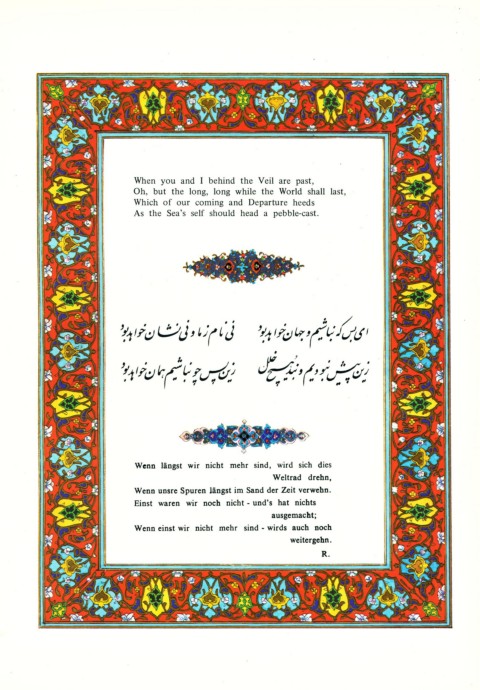 When you and I behind the Veil are past,
Oh, but the long, long while the World shall last,
Which of our coming and Departure heeds
As the Sea's self should head a pebble-cast.
ای بس که نباشیم و جهان خواهد بود نی نام ز ما و نی نشان خواهد بود
زین پیش نبودیم و نبد هیچ خلل زین پس چو نباشیم همان خواهد بود
Wenn längst wir nicht mehr sind, wird sich dies
Weltrad drehn,
Wenn unsre Spuren längst im Sand der Zeit verwehn.
Einst waren wir noch nicht - und's hat nichts
ausgemacht;
Wenn einst wir nicht mehr sind - wirds auch noch
weitergehn.
R.